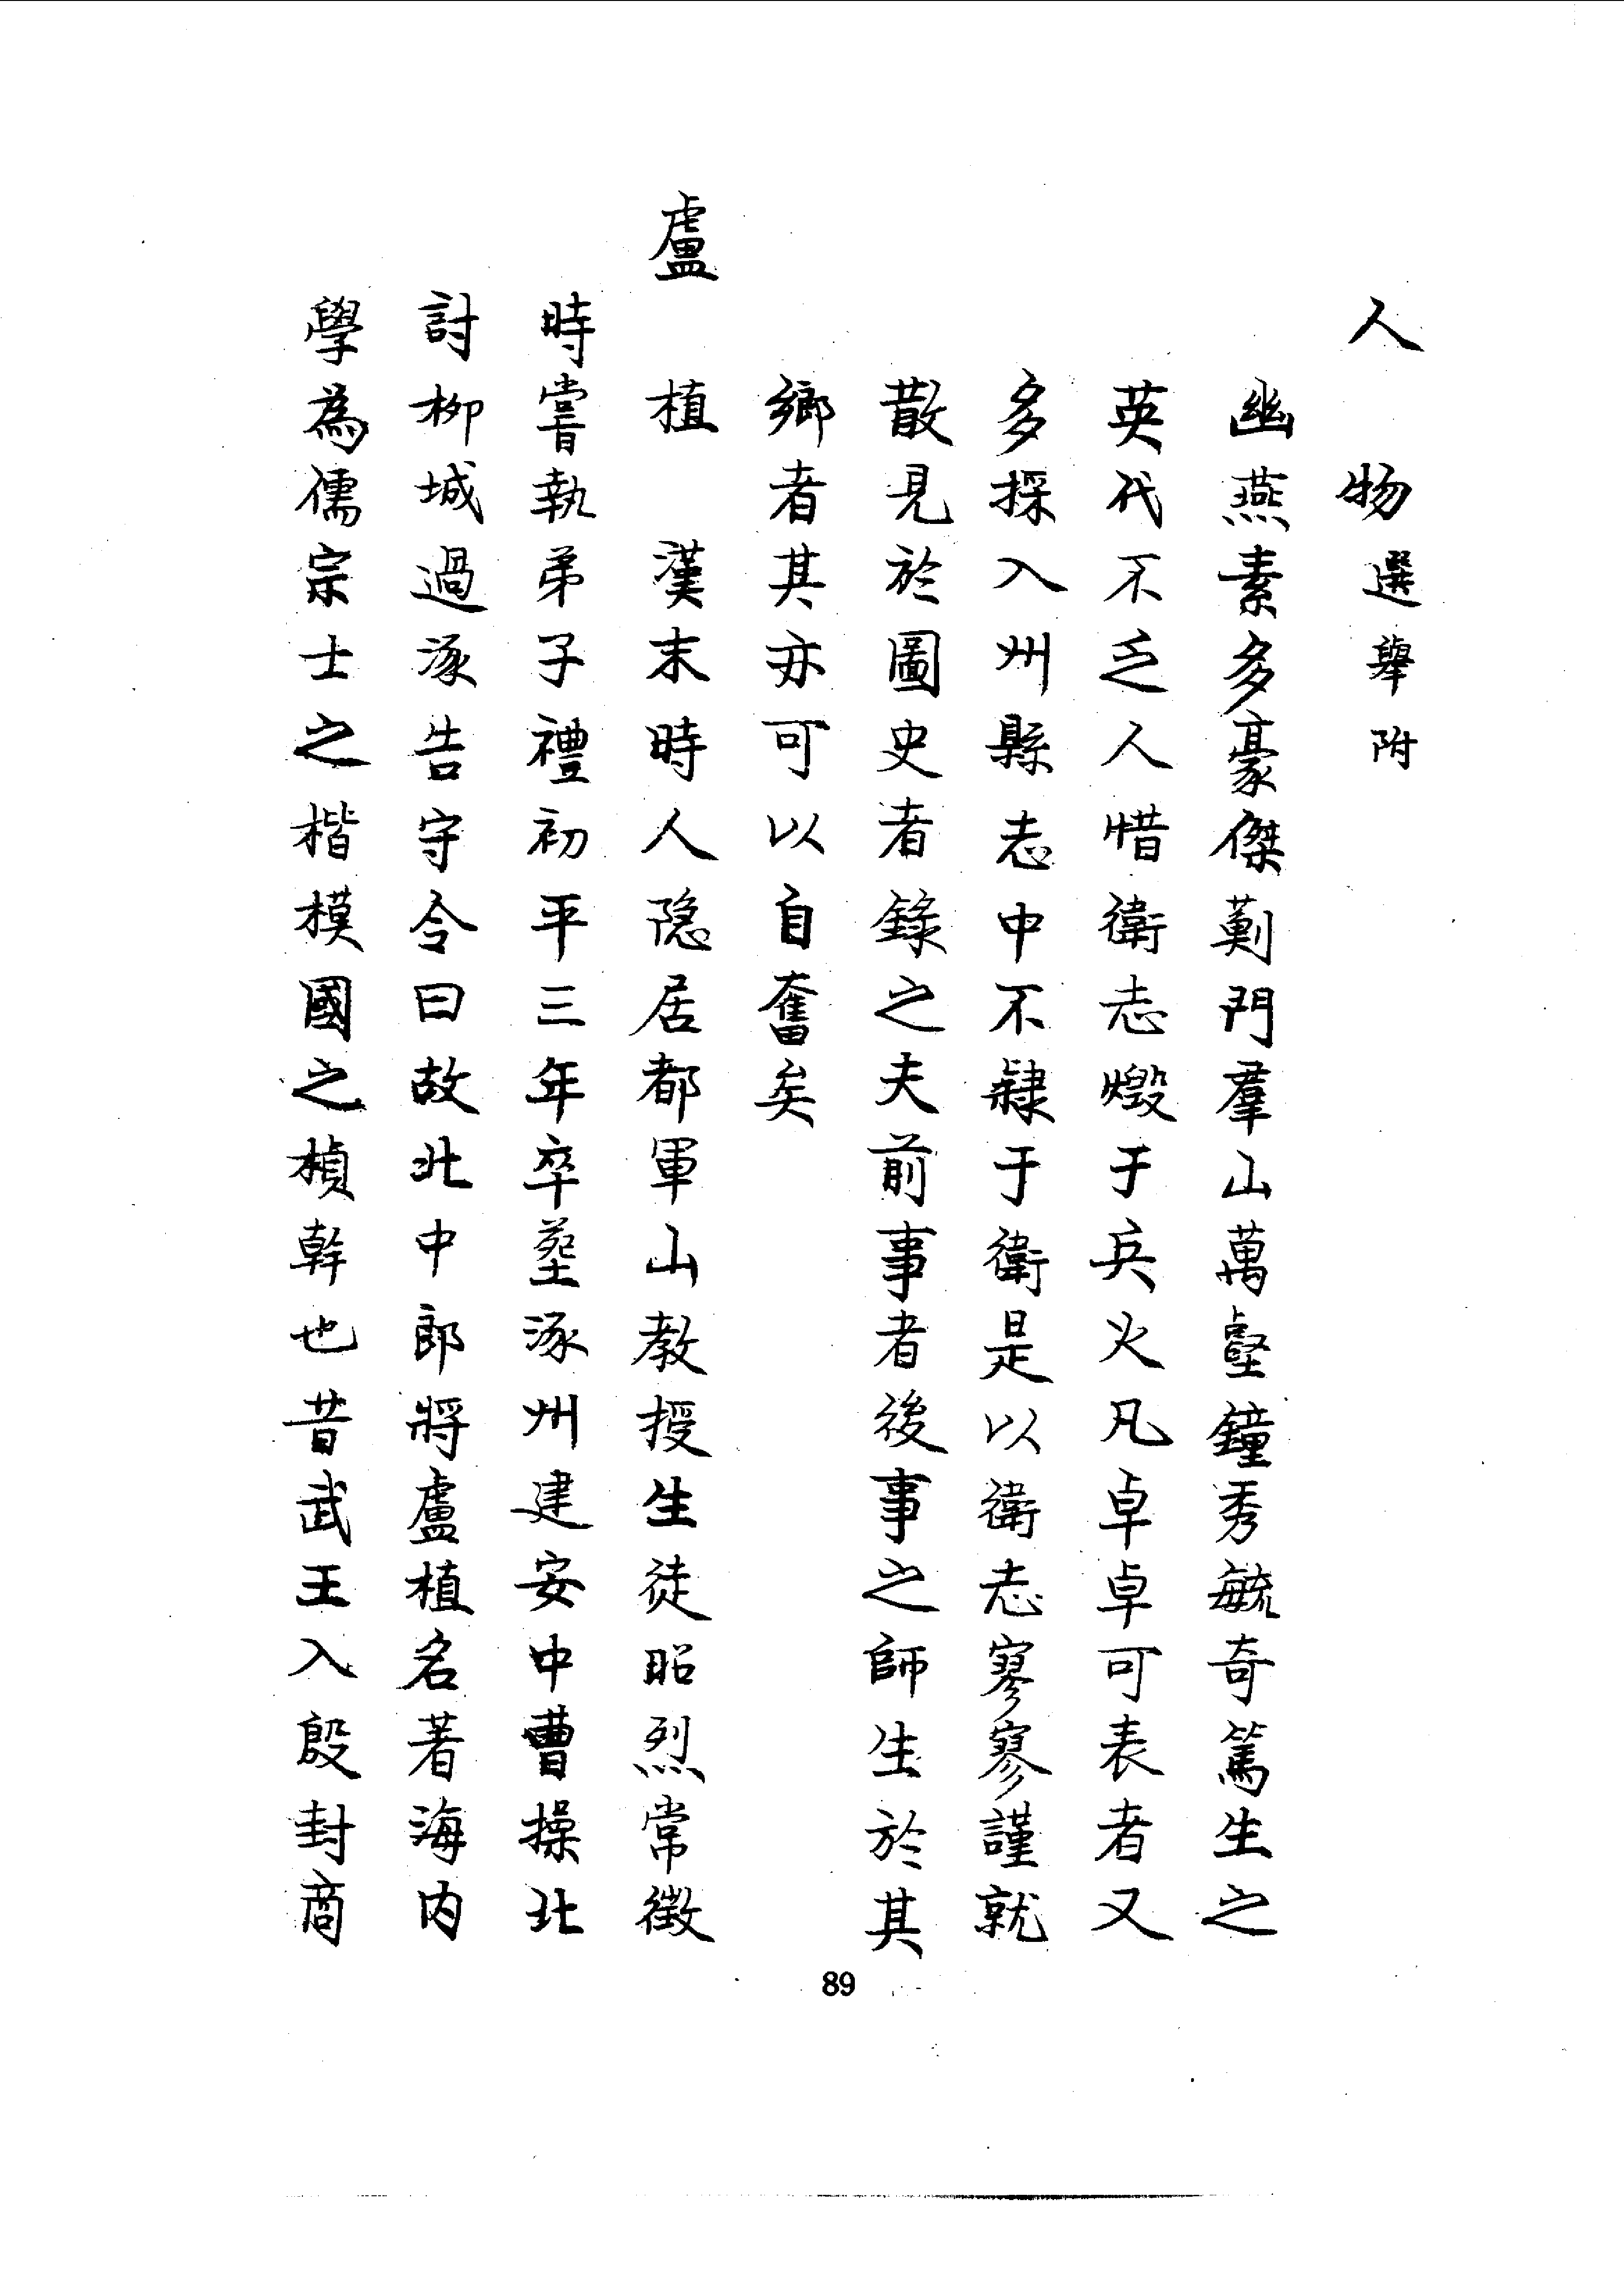 人物選舉附
幽燕素多豪傑薊門羣山萬壑鐘秀毓奇篤生之
英代不乏人惜衛志燬于兵火凡卓卓可表者又
多採入州縣志中不隸于衛是以衛志寥寥謹就
散見於圖史者錄之夫前事者後事之師生於其
鄉者其亦可以自奮矣
盧植漢末時人隐居都軍山教授生徒昭烈常徵
時嘗執弟子禮初平三年卒塟涿州建安中曹操北
討柳城過涿告守令曰故北中郎將盧植名著海内
學為儒宗士之楷模國之楨幹也昔武王入殷封商
89